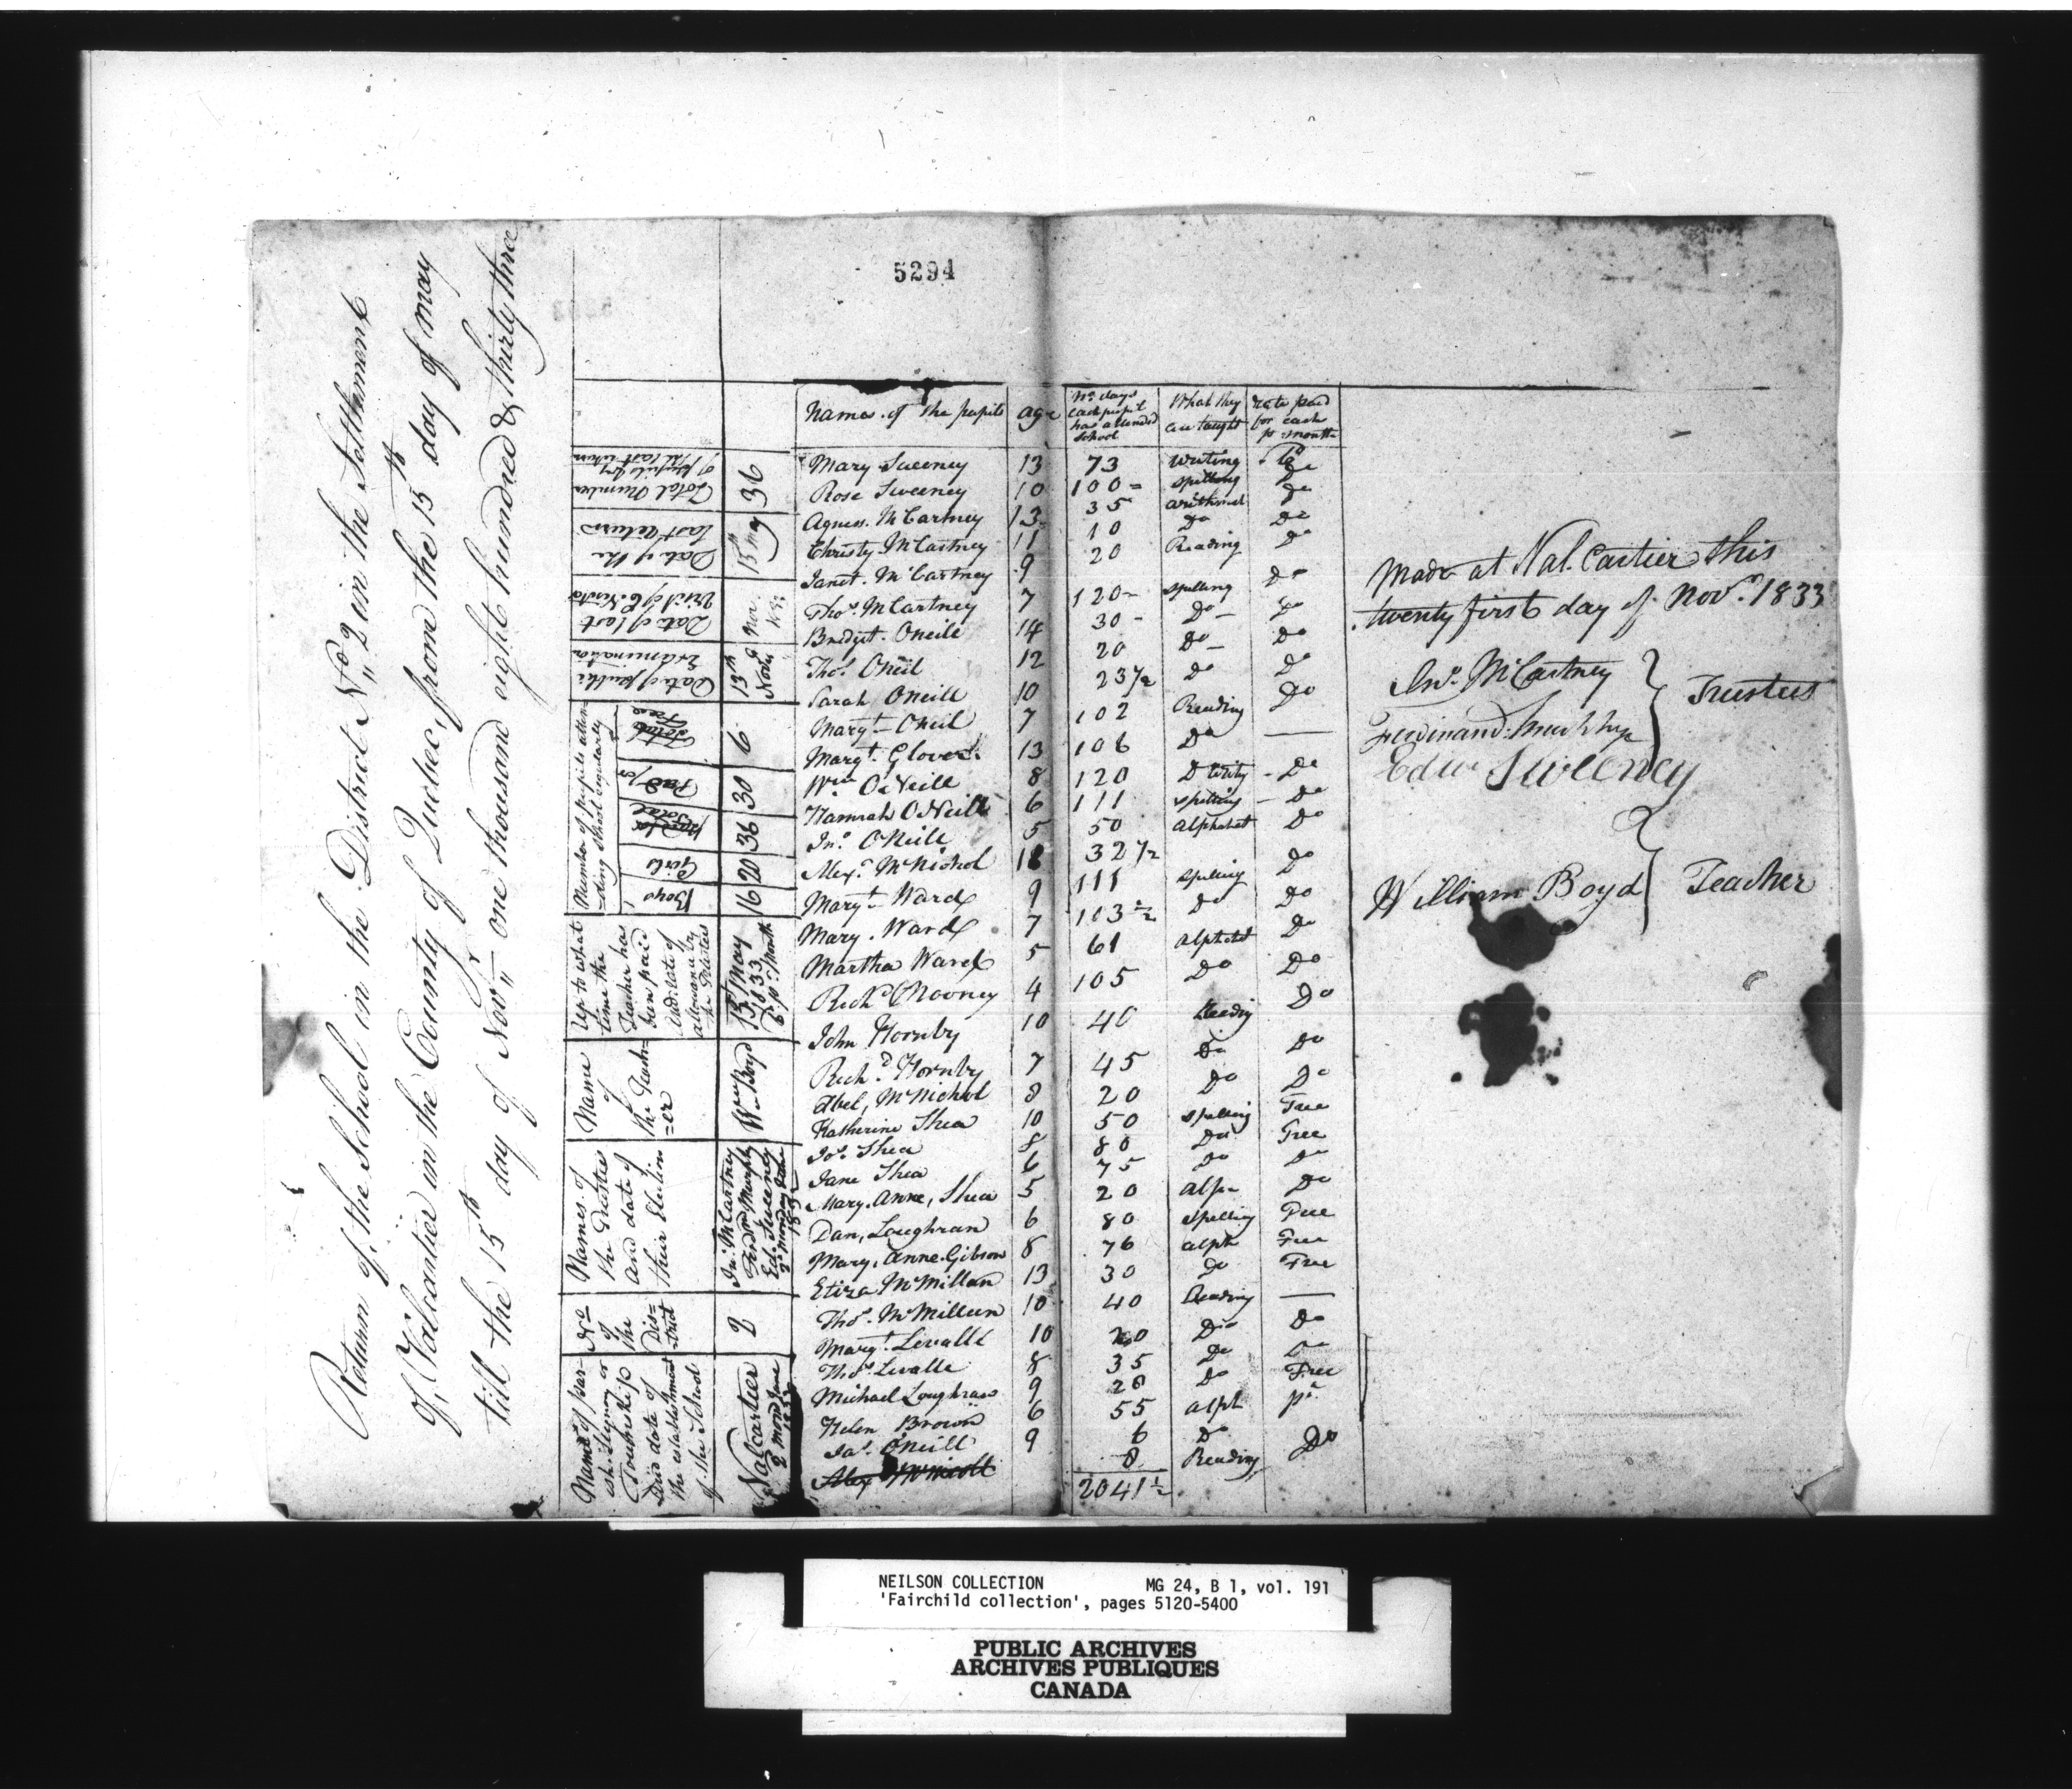 5294
Return of the School in the District No. 2 in the Settlement
of Valcartier in the County of Quebec, from the 15th day of May
till the 15th day of Novr. one thousand eight hundred & thirty three
Name of par-
ish Signiory or
Township
And date of
the establishment
of the School
Valcartier
2 mond June
No
of
the
Dis=
trict
2
Names of
the Trustee
and date of
their Election
Jno. McCartney
Ferdnd Murphy
Ed. Sweeney
2d monday June
Name
of
the Teach=
=er
Wm Boyd
Up to what
time the
Teacher has
been paid
And rate of
allowance by
the Trustees
15 May
1833
Number of pupils atten
-ding School regularly
Boys
16
Girls
20
Total
36
Pay
30
Free
6
Date of public
Examination
13th
Novr
Date of last
Visit of
Nov.
Date of the
last Return
15th may
Total Number
of pupils by
last return
36
Names of the pupils age No. days each pupil has attended School What they are taught rate paid for each pr month
Mary Sweeney 13 73 Writing
Rose Sweeney 10 100 Spelling Do
Agness McCartney 13 35 Arithmet Do
Christy McCartney 11 10 Do Do
Janet McCartney 9 20 Reading Do
Thos. McCartney 7 120 Spelling Do
Bridget Oneill 14 30 Do Do
Thos. Oneil 12 20 Do Do
Sarah Oneill 10 23½ Do Do
Margt Oneil 7 102 Reading Do
Margt. Glover 13 106 Do —
Wm ONeill 8 120 Do
Hannah ONeill 6 111 Spelling Do
Jno. ONeill 5 50 Alphabet Do
Alexr. McNichol 18 32½ Do
Margt Ward 9 111 Spelling Do
Mary Ward 7 103½ Do Do
Martha Ward 5 61 Alphabet Do
Richd Mooney 4 105 Do Do
John Hornby 10 40 Reading Do
Richd. Hornby 7 45 Do Do
Abel McNichol 8 20 Do Do
Katherine Shea 10 50 Spelling Free
Jos. Shea 8 80 Do Free
Jane Shea 6 75 Do Do
Mary Anne, Shea 5 20 Alph Do
Dan, Loughran 6 80 Spelling Free
Mary, Anne Gibson 8 76 alph Free
Eliza McMillan 13 30 Do Free
Thos. McMillun 10 40 Reading —
Margt. Levalle 10 20 Do Do
Thos. Levalle 8 35 Do Do
Michael Loughran 9 20 Do Free
Helen Brown 6 55 alph
Jas. ONeill 9 6 Do
8 Reading Do
2041½
Made at Val. Cartier this
twenty first day of Novr. 1833
Jno. McCartney
Ferdinand Murphy
Edw Sweeney
Trustees
William Boyd Teacher
NEILSON COLLECTION MG 24, B 1, vol. 191
'Fairchild collection', pages 5120-5400
PUBLIC ARCHIVES
ARCHIVES PUBLIQUES
CANADA